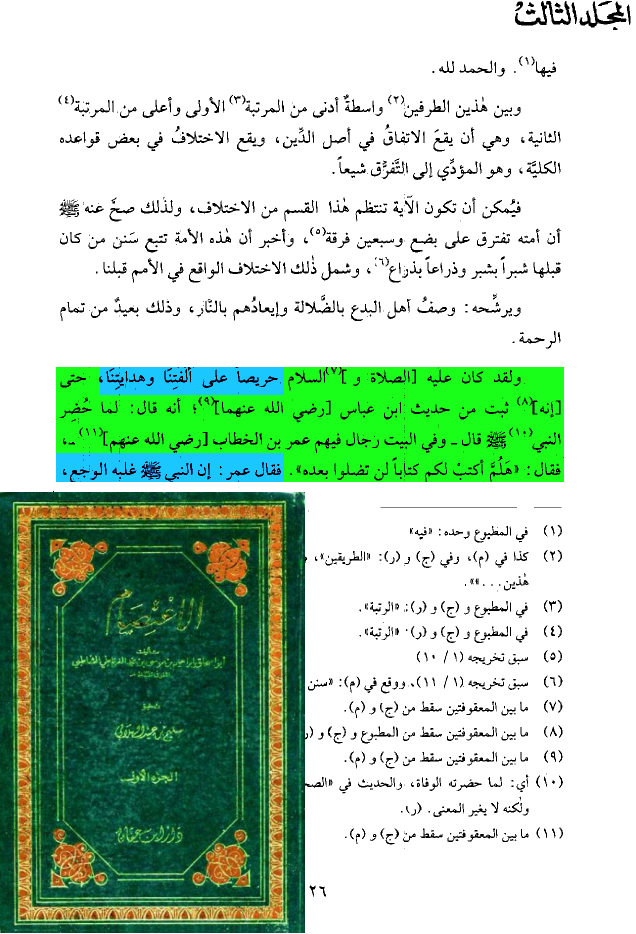 المجلد الثالث
فيها(١). والحمد لله.
وبين هٰذين الطرفين(٢) واسطةٌ أدنى من المرتبة(٣) الأولى وأعلى من المرتبة(٤)
الثانية، وهي أن يقعَ الاتفاقُ في أصل الدِّين، ويقع الاختلافُ في بعض قواعده
الكليَّة، وهو المؤدِّي إلى التَّفرُّق شيعاً.
فيُمكن أن تكون الآية تنتظم هٰذا القسم من الاختلاف، ولذلك صحَّ عنه ﷺ
أن أمته تفترق على بضع وسبعين فرقة(٥)، وأخبر أن هٰذه الأمة تتبع سَنن من كان
قبلها شبراً بشبر وذراعاً بذراع(٦)، وشمل ذٰلك الاختلاف الواقع في الأمم قبلنا.
ويرشِّحه: وصفُ أهل البدع بالضَّلالة وإيعادُهم بالنَّار، وذلك بعيدٌ من تمام
الرحمة.
ولقد كان عليه [الصلاة و](٧) السلام حريصاً على أُلفتِنا وهدايتِنا، حتى
[إنه](٨) ثبت من حديث ابن عباس [رضي الله عنهما](٩)؛ أنه قال: لما حُضِر
النبي(١٠) ﷺ قال ـ وفي البيت رجال فيهم عمر بن الخطاب [رضي الله عنهم](١١) ـ،
فقال: «هَلُمَّ أكتبْ لكم كتاباً لن تضلوا بعده». فقال عمر: إن النبي ﷺ غلبه الوجع،
(١) في المطبوع وحده: «فيه»
(٢) كذا في (م)، وفي (ج) و (ر): «الطريقين»،
هٰذين...».
(٣) في المطبوع و (ج) و (ر): «الرتبة».
(٤) في المطبوع و (ج) و (ر): «الرتبة».
(٥) سبق تخريجه (١ / ١٠)
(٦) سبق تخريجه (١ / ١١)، ووقع في (م): «سنن
(٧) ما بين المعقوفتين سقط من (ج) و (م).
(٨) ما بين المعقوفتين سقط من المطبوع و (ج) و (ر
(٩) ما بين المعقوفتين سقط من (ج) و (م).
(١٠) أي: لما حضرته الوفاة، والحديث في «الصح
ولٰكنه لا يغير المعنى. (ر).
(١١) ما بين المعقوفتين سقط من (ج) و (م).
الاعتصام
تأليف
تحقيق
سليم بن عيد الهلالي
الجزء الأول
دار ابن عفان
٢٦